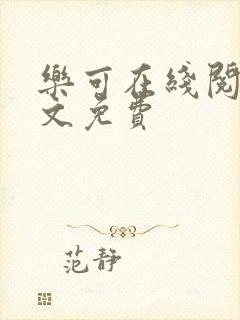 樂可在綫閱
文免費
范靜